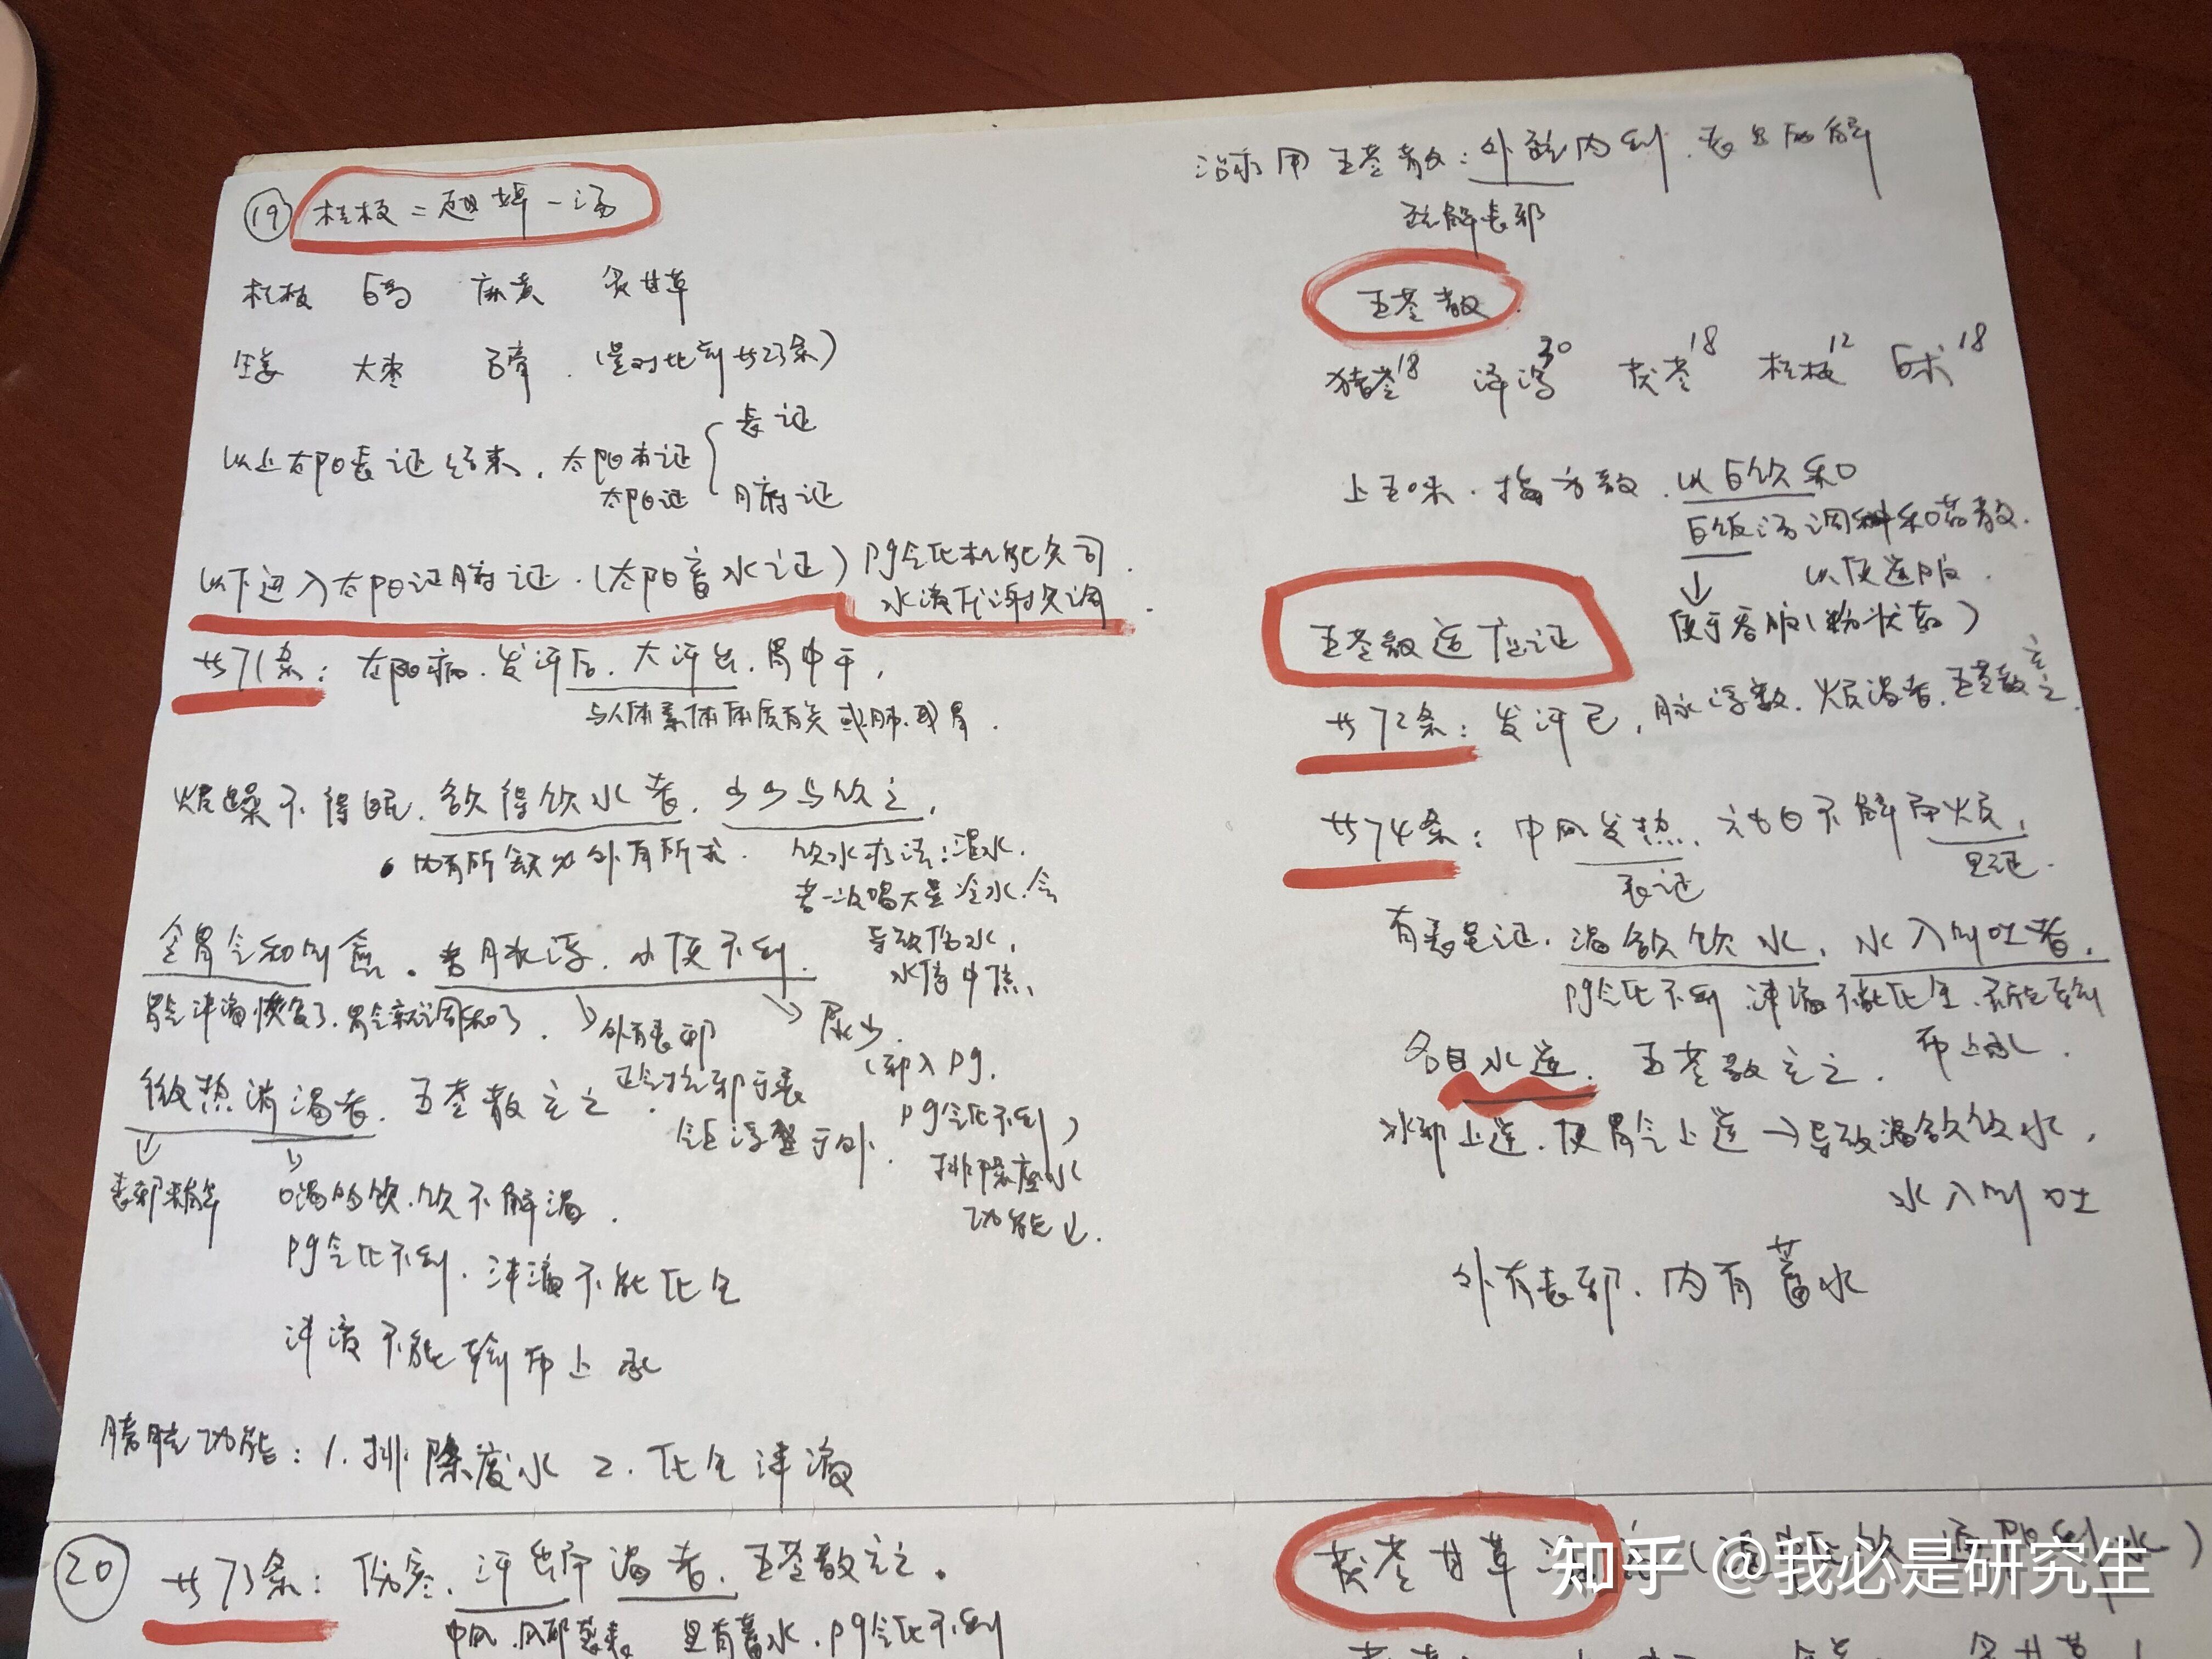 ⑲ 桂枝二越婢一汤
桂枝 白芍 麻黄 炙甘草
生姜 大枣 石膏.(是对比到共23条)
以上太阳表证结束.太阳本证 表证
太阳证 腑证
以下进入太阳证腑证.(太阳蓄水证)pg气化机能失司.
水液代谢失调.
共71条:太阳病.发汗后.大汗出.胃中干,
与人体素体体质有关 或肺.或胃.
烦躁不得眠.欲得饮水者.少少与饮之,
内有所欲为外有所求. 饮水疗法:温水.
若一次喝大量冷水.会
导致伤水,
水停中焦、
令胃气和则愈。若脉浮.小便不利.
胃气津液恢复了.胃气就调和了. 外有表邪
正气抗邪于表
气浮盛于外.
尿少.
(邪入pg.
pg气化不利)
排除废水
功能↓.
微热消渴者.五苓散主之.
表邪未解 口渴的饮.饮不解渴.
pg气化不利.津液不能化生
津液不能输布上承
膀胱功能:1.排除废水 2.化生津液
⑳ 共73条:伤寒.汗出而渴者.五苓散主之。
中风.风邪袭表 里有蓄水.pg气化不利
治疗用五苓散:外疏内利.表里两解
疏解表邪
五苓散.
猪苓18 泽泻30 茯苓18 桂枝12 白术18
上五味.捣为散.以白饮和
白饭汤调和药散.
以便送服.
↓
便于吞服(粉状药)
五苓散适应证
共72条:发汗已,脉浮数.烦渴者.五苓散主之.
共74条:中风发热.六七日不解而烦,
表证 里证.
有表里证.渴欲饮水,水入则吐者,
pg气化不利 津液不能化生.不能输
布上承.
名曰水逆.五苓散主之.
水邪上逆.使胃气上逆→导致渴欲饮水,
水入则吐
外有表邪.内有蓄水
茯苓甘草汤
知乎 @我必是研究生